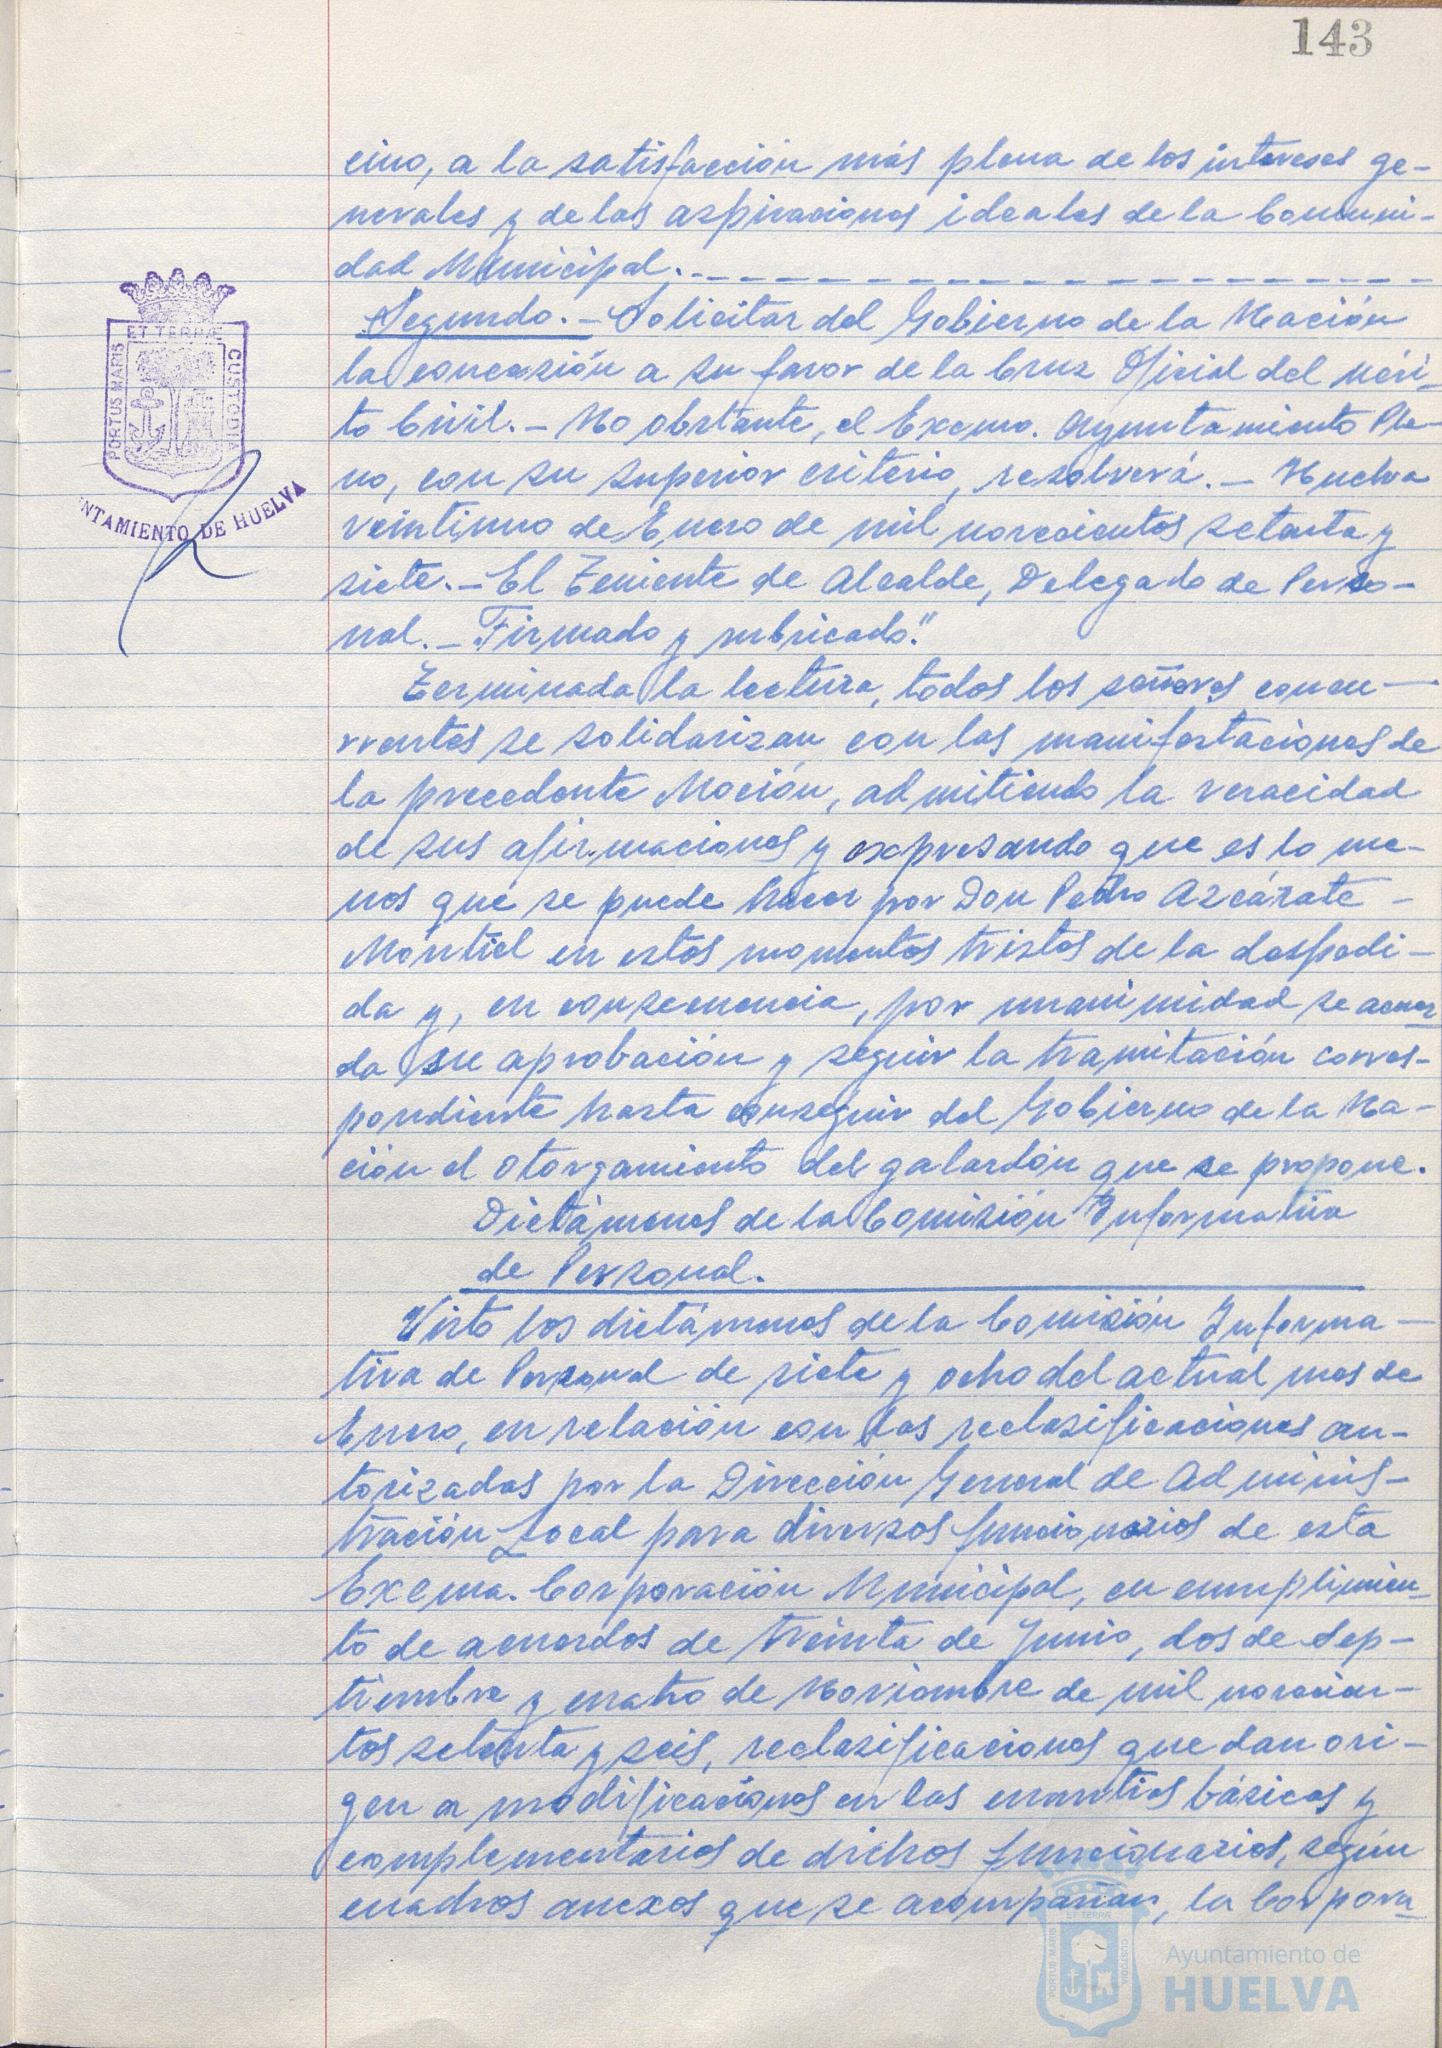 143
cino, a la satisfacción más plena de los intereses ge-
nerales y de las aspiraciones ideales de la Comuni-
dad Municipal.
Segundo.- Solicitar del Gobierno de la Nación
la concesión a su favor de la Cruz Oficial del Méri-
to Civil.- No obstante, el Excmo. Ayuntamiento Ple-
no, con su superior criterio, resolverá.- Huelva
veintiuno de Enero de mil novecientos setenta y
siete.- El Teniente de Alcalde, Delegado de Perso-
nal.- Firmado y rubricado."
Terminada la lectura, todos los señores concu-
rrentes se solidarizan con las manifestaciones de
la precedente Moción, admitiendo la veracidad
de sus afirmaciones y expresando que es lo me-
nos que se puede hacer por Don Pedro Azcárate
Montiel en estos momentos tristes de la despedi-
da y, en consecuencia, por unanimidad se acuer-
da su aprobación y seguir la tramitación corres-
pondiente hasta conseguir del Gobierno de la Na-
ción el otorgamiento del galardón que se propone.
Dictámenes de la Comisión Informativa
de Personal.
Visto los dictámenes de la Comisión Informa-
tiva de Personal de siete y ocho del actual mes de
Enero, en relación con las reclasificaciones au-
torizadas por la Dirección General de Adminis-
tración Local para diversos funcionarios de esta
Excma. Corporación Municipal, en cumplimien-
to de acuerdos de treinta de Junio, dos de Sep-
tiembre y cuatro de Noviembre de mil novecien-
tos setenta y seis, reclasificaciones que dan ori-
gen a modificaciones en las cuantías básicas y
complementarias de dichos funcionarios, según
cuadros anexos que se acompañan, la Corpora-
PORTUS MARIS
ET TERRÆ
CUSTODIA
NTAMIENTO DE HUELVA
PORTUS MARIS
ET TERRÆ
CUSTODIA
Ayuntamiento de
HUELVA